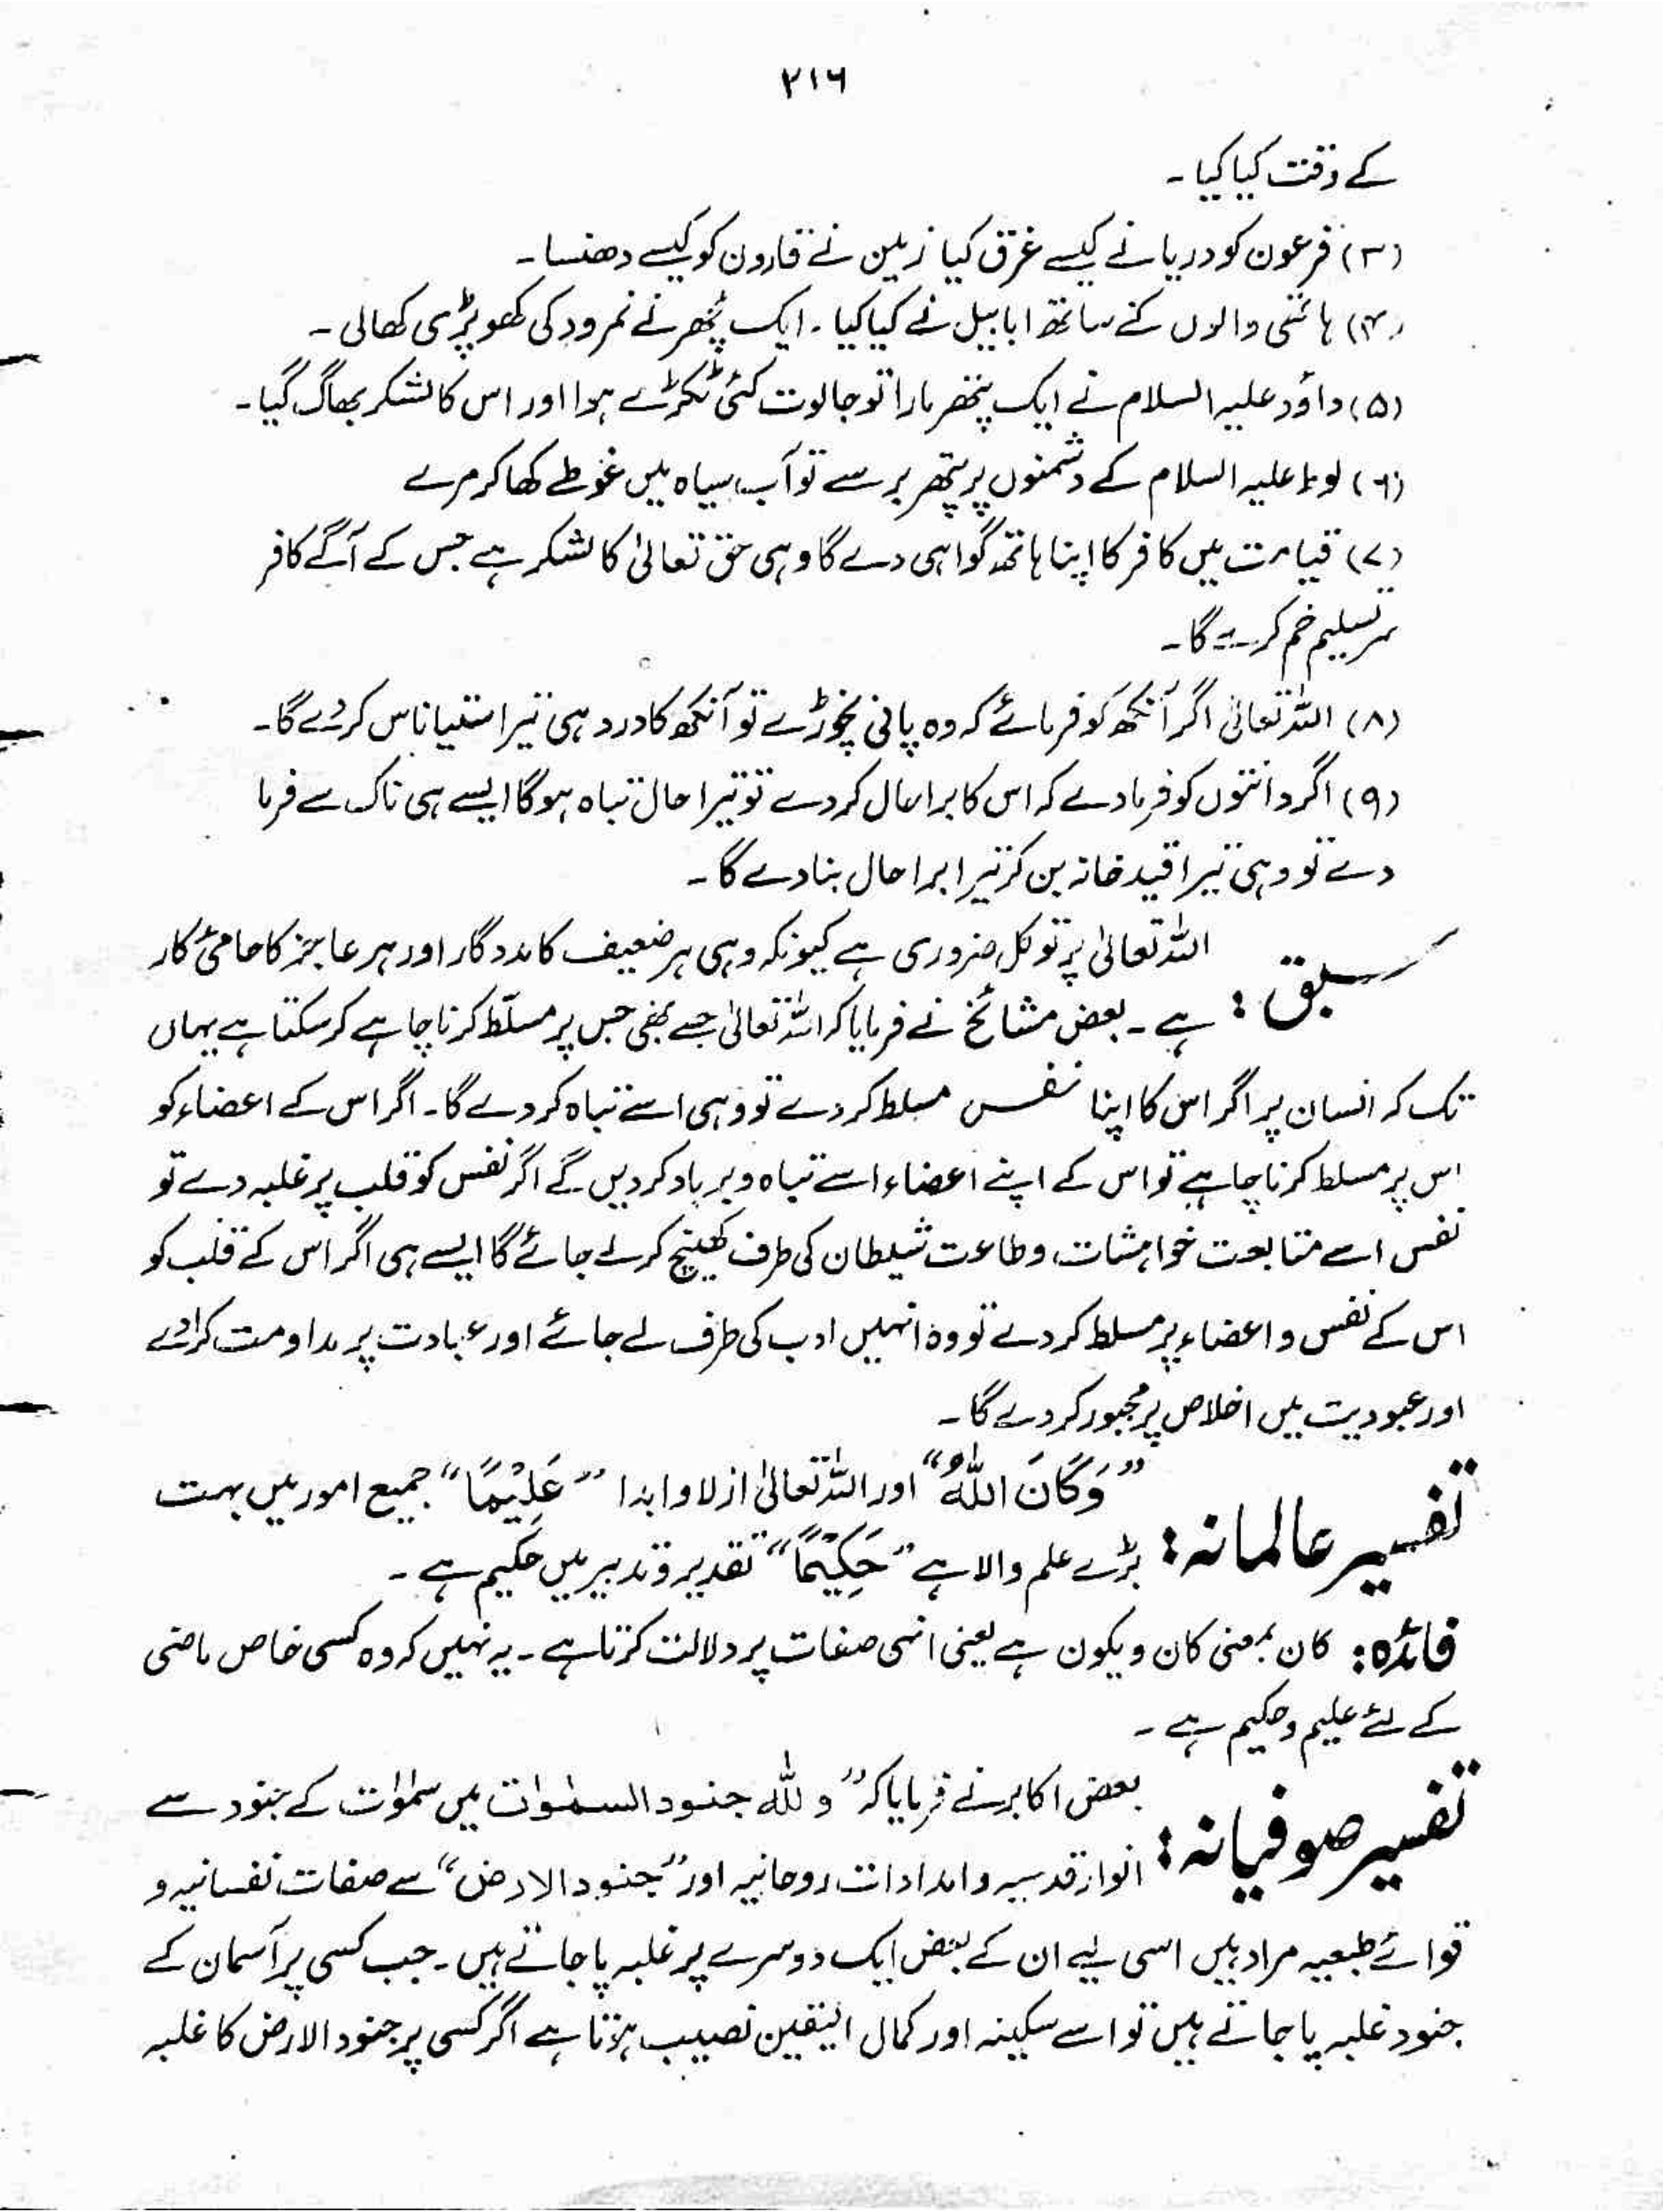 ۲۱۶
کے وقت کیا کیا ۔
(۳) فرعون کو دریا نے کیسے غرق کیا زمین نے قارون کو کیسے دھنسا ۔
(۴) ہاتھی والوں کے ساتھ ابابیل نے کیا کیا ۔ ایک مچھر نے نمرود کی کھوپڑی کھالی ۔
(۵) داؤد علیہ السلام نے ایک پتھر مارا تو جالوت کئی ٹکڑے ہوا اور اس کا لشکر بھاگ گیا ۔
(۶) لوط علیہ السلام کے دشمنوں پر پتھر برسے تو آب سیاہ میں غوطے کھا کر مرے
(۷) قیامت میں کافر کا اپنا ہاتھ گواہی دے گا وہی حق تعالیٰ کا لشکر ہے جس کے آگے کافر
سر تسلیم خم کرے گا ۔
(۸) اللہ تعالیٰ اگر آنکھ کو فرمائے کہ وہ پانی نچوڑے تو آنکھ کا درد ہی تیرا ستیاناس کر دے گا ۔
(۹) اگر دانتوں کو فرمادے کہ اس کا برا حال کردے تو تیرا حال تباہ ہوگا ایسے ہی ناک سے فرما
دے تو وہی تیرا قید خانہ بن کر تیرا برا حال بنا دے گا ۔
سبق : اللہ تعالیٰ پر توکل ضروری ہے کیونکہ وہی ہر ضعیف کا مددگار اور ہر عاجز کا حامیٔ کار
ہے ۔ بعض مشائخ نے فرمایا کہ اللہ تعالیٰ جسے بھی جس پر مسلّط کرنا چاہے کر سکتا ہے یہاں
تک کہ انسان پر اگر اس کا اپنا نفس مسلط کر دے تو وہی اسے تباہ کر دے گا ۔ اگر اس کے اعضاء کو
اس پر مسلط کرنا چاہے تو اس کے اپنے اعضاء اسے تباہ و برباد کر دیں گے اگر نفس کو قلب پر غلبہ دے تو
نفس اسے متابعت خواہشات و طاعت شیطان کی طرف کھینچ کر لے جائے گا ایسے ہی اگر اس کے قلب کو
اس کے نفس و اعضاء پر مسلط کر دے تو وہ انہیں ادب کی طرف لے جائے اور عبادت پر مداومت کرا دے
اور عبودیت میں اخلاص پر مجبور کر دے گا ۔
تفسیر عالمانہ : ”وَكَانَ اللّٰهُ“ اور اللہ تعالیٰ ازلا و ابدا ”عَلِيْمًا“ جمیع امور میں بہت
بڑے علم والا ہے ”حَكِيْمًا“ تقدیر و تدبیر میں حکیم ہے ۔
فائدہ : کان بمعنی کان ویکون ہے یعنی انہی صفات پر دلالت کرتا ہے ۔ یہ نہیں کہ وہ کسی خاص ماضی
کے لئے علیم و حکیم ہے ۔
تفسیر صوفیانہ : بعض اکابر نے فرمایا کہ ”وللّٰه جنود السمٰوات میں سمٰوٰت کے جنود سے
انوار قدسیہ و امدادات روحانیہ اور ”جنود الارض“ سے صفات نفسانیہ و
قوائے طبعیہ مراد ہیں اسی لیے ان کے بعض ایک دوسرے پر غلبہ پا جاتے ہیں ۔ جب کسی پر آسمان کے
جنود غلبہ پا جاتے ہیں تو اسے سکینہ اور کمال الیقین نصیب ہوتا ہے اگر کسی پر جنود الارض کا غلبہ